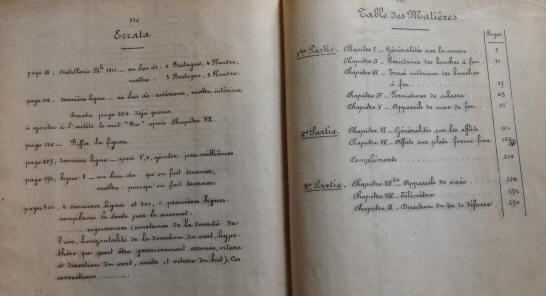 330
Errata
page 28, Artillerie Ble 1910 - au lieu de : 4 Bretagne, 4 Flandre,
mettre : 3 Bretagne, 3 Flandre.
dernière ligne - au lieu de extérieur, mettre intérieur.
Errata page 224 déjà parus
à ajouter à l'entête le mot "Bis" après Chapitre VII.
Biffer la figure.
page 227, dernière ligne - après ajouter par millièmes.
page 270, ligne 8 - au lieu de qu'on fait tourner,
mettre puisqu'on fait tourner.
pages 300, 2 dernières lignes et 301, 6 premières lignes
remplacer le texte par le suivant :
rigoureuses (constance de la densité de
l'air, horizontalité de la direction du vent, hypo-
thèse qui peut être grossièrement erronée, vitesse
et direction du vent, route et vitesse du but). Ces
corrections
Table des Matières
Pages
1ère Partie. Chapitre I - Généralités sur le canon 3
Chapitre II - Résistance des bouches à feu 21
Chapitre III - Tracé intérieur des bouches
à feu 47
Chapitre IV - Fermetures de culasse 63
Chapitre V - Appareils de mise de feu
2e Partie. Chapitre VI - Généralités sur les affûts
Chapitre VII - Affûts sur plate-forme fixe
Compléments 214
3e Partie. Chapitre VII bis - Appareils de visée 224
Chapitre VIII - Télémètre 272
Chapitre IX - Direction du tir de défense 290